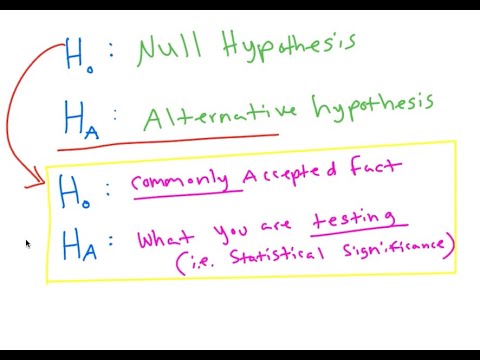 H₀: Null Hypothesis
H_A: Alternative hypothesis
H₀: Commonly Accepted Fact
H_A: What you are testing
(i.e. Statistical Significance)